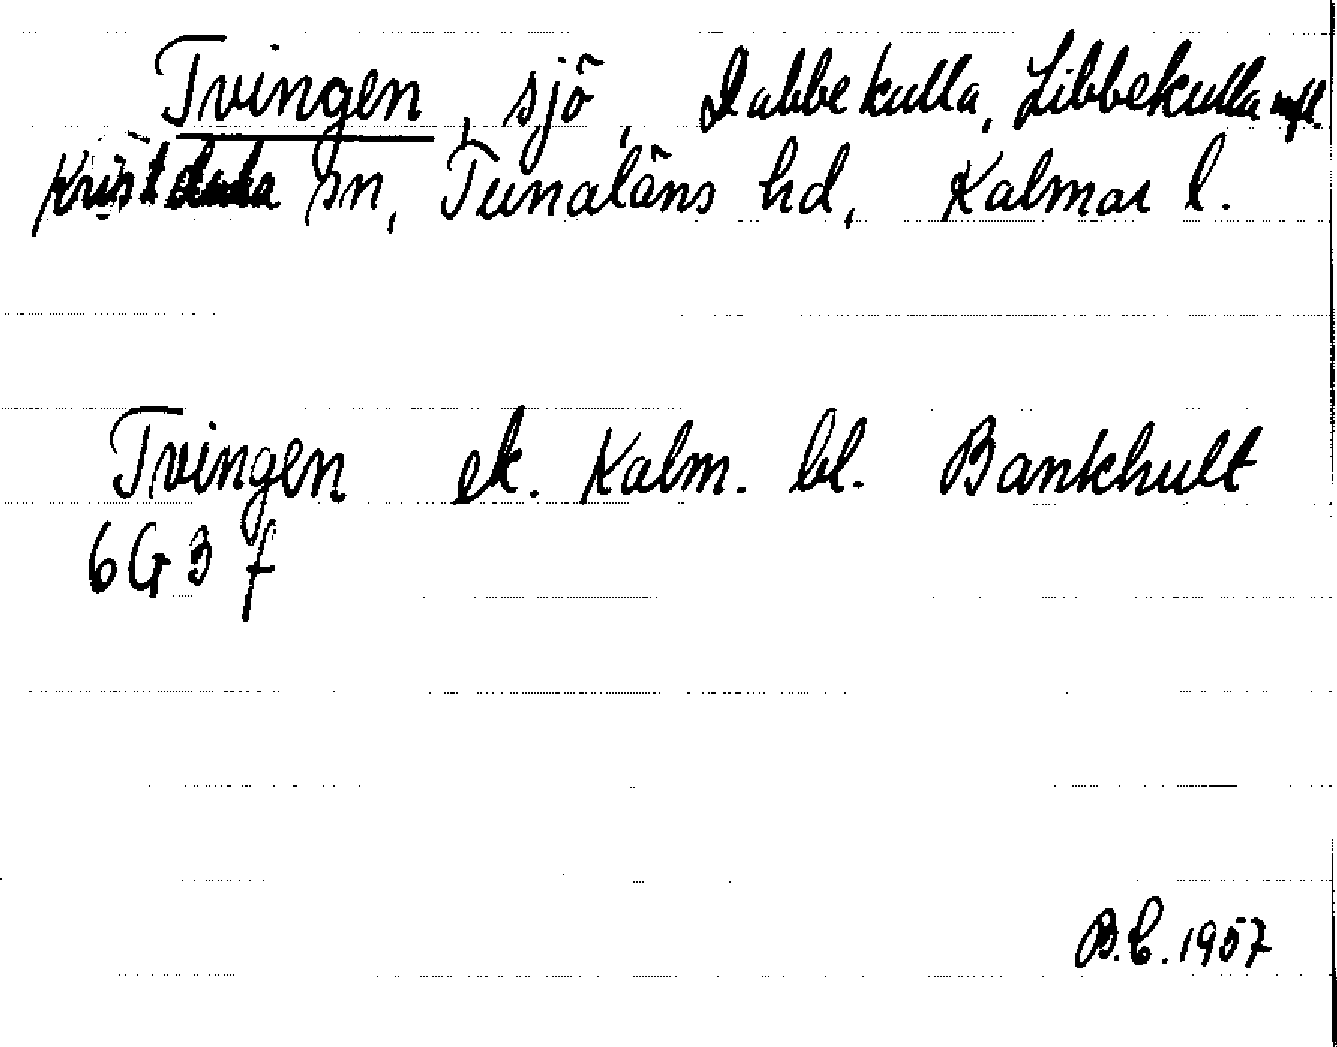 Tvingen, sjö, Dabbekulla, Libbekulla mfl.
Kristdala sn, Tunaläns hd, Kalmar l.
Tvingen ek. Kalm. bl. Bankhult
6G3f
B.E. 1957